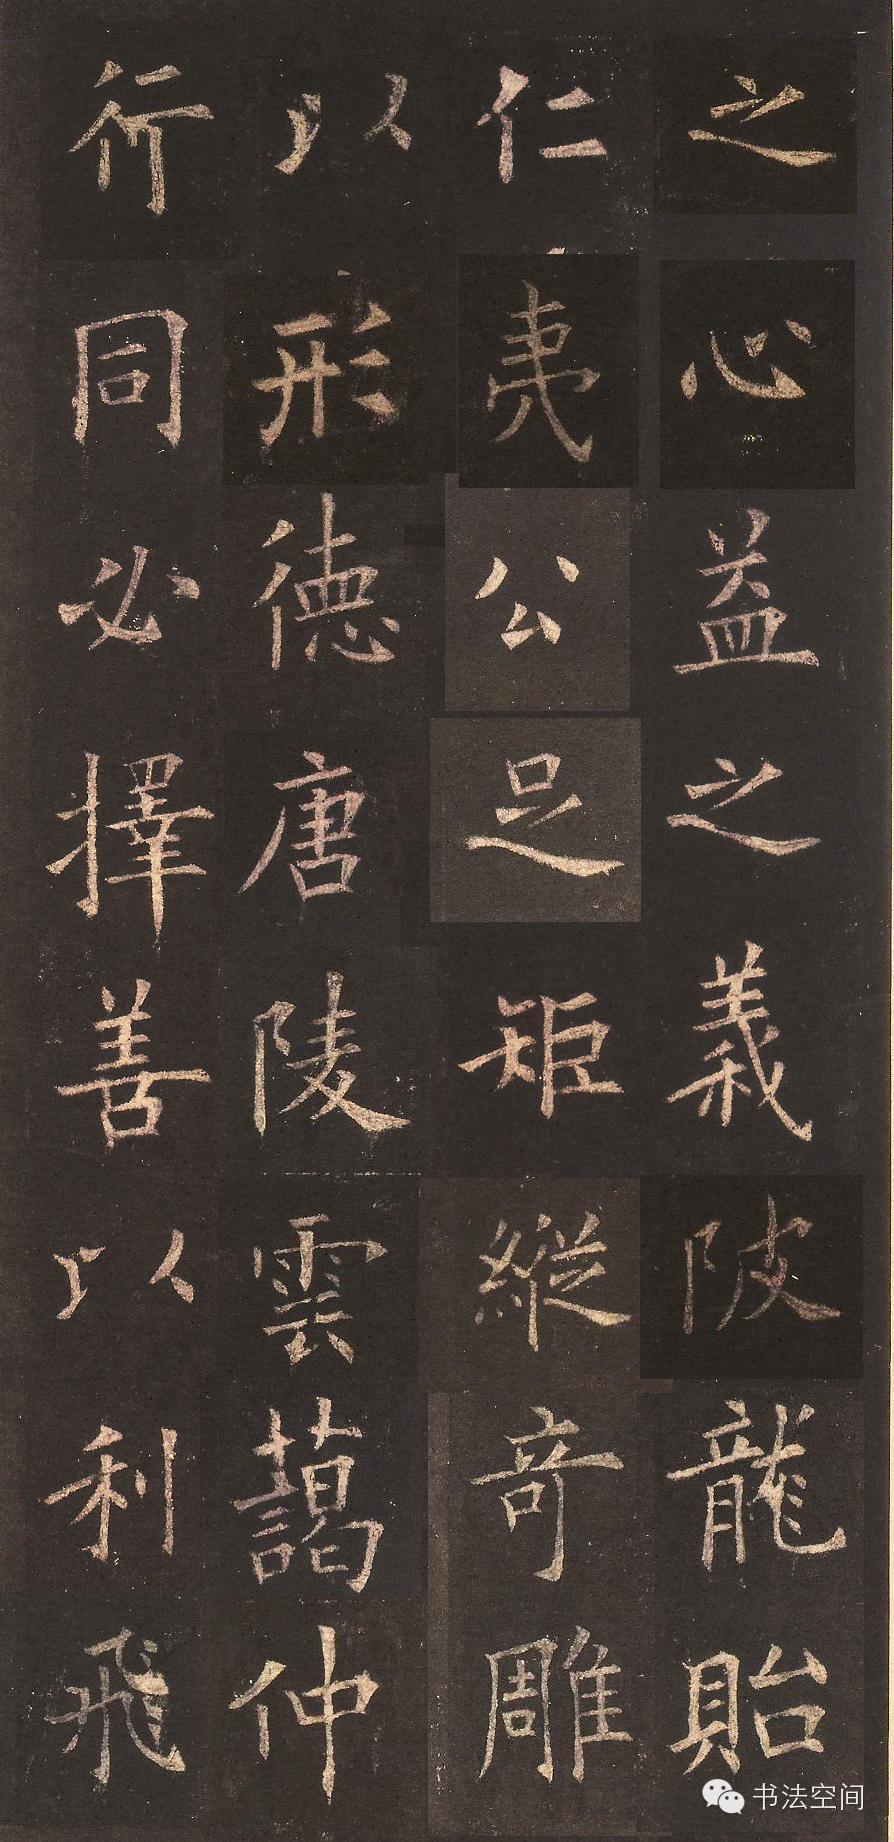 之心益之義陂龍貽
仁夷公足矩縱奇雕
以形德唐陵雲藹仲
行同必擇善以利飛
书法空间